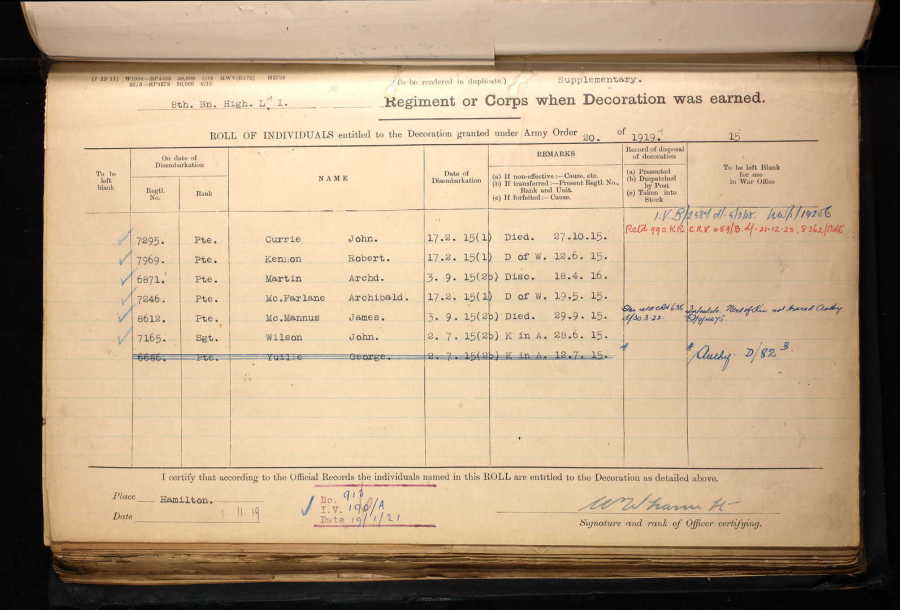 (To be rendered in duplicate.) Supplementary.
8th. Bn. High. L. I. Regiment or Corps when Decoration was earned.
ROLL OF INDIVIDUALS entitled to the Decoration granted under Army Order 20. of 1919. 15
To be left blank
On date of Disembarkation
Regtl. No.
Rank
NAME
Date of Disembarkation
REMARKS
(a) If non-effective:—Cause, etc.
(b) If transferred:—Present Regtl. No., Rank and Unit.
(c) If forfeited:—Cause.
Record of disposal of decoration
(a) Presented
(b) Despatched by Post
(c) Taken into Stock
To be left Blank for use in War Office
7295. Pte. Currie John. 17.2. 15(1) Died. 27.10.15.
7969. Pte. Kennon Robert. 17.2. 15(1) D of W. 12.6. 15.
6871. Pte. Martin Archd. 3. 9. 15(2b) Disc. 18.4. 16.
7246. Pte. Mc.Farlane Archibald. 17.2. 15(1) D of W. 19.5. 15.
8612. Pte. Mc.Mannus James. 3. 9. 15(2b) Died. 29.9. 15.
7165. Sgt. Wilson John. 2. 7. 15(2b) K in A. 28.6. 15.
6686. Pte. Yuille George. 2. 7. 15(2b) K in A. 12.7. 15. Authy. D/82
I certify that according to the Official Records the individuals named in this ROLL are entitled to the Decoration as detailed above.
Place Hamilton.
Date 11.19
No. 910
I.V. 190/A
Date 19/1/21
Signature and rank of Officer certifying.